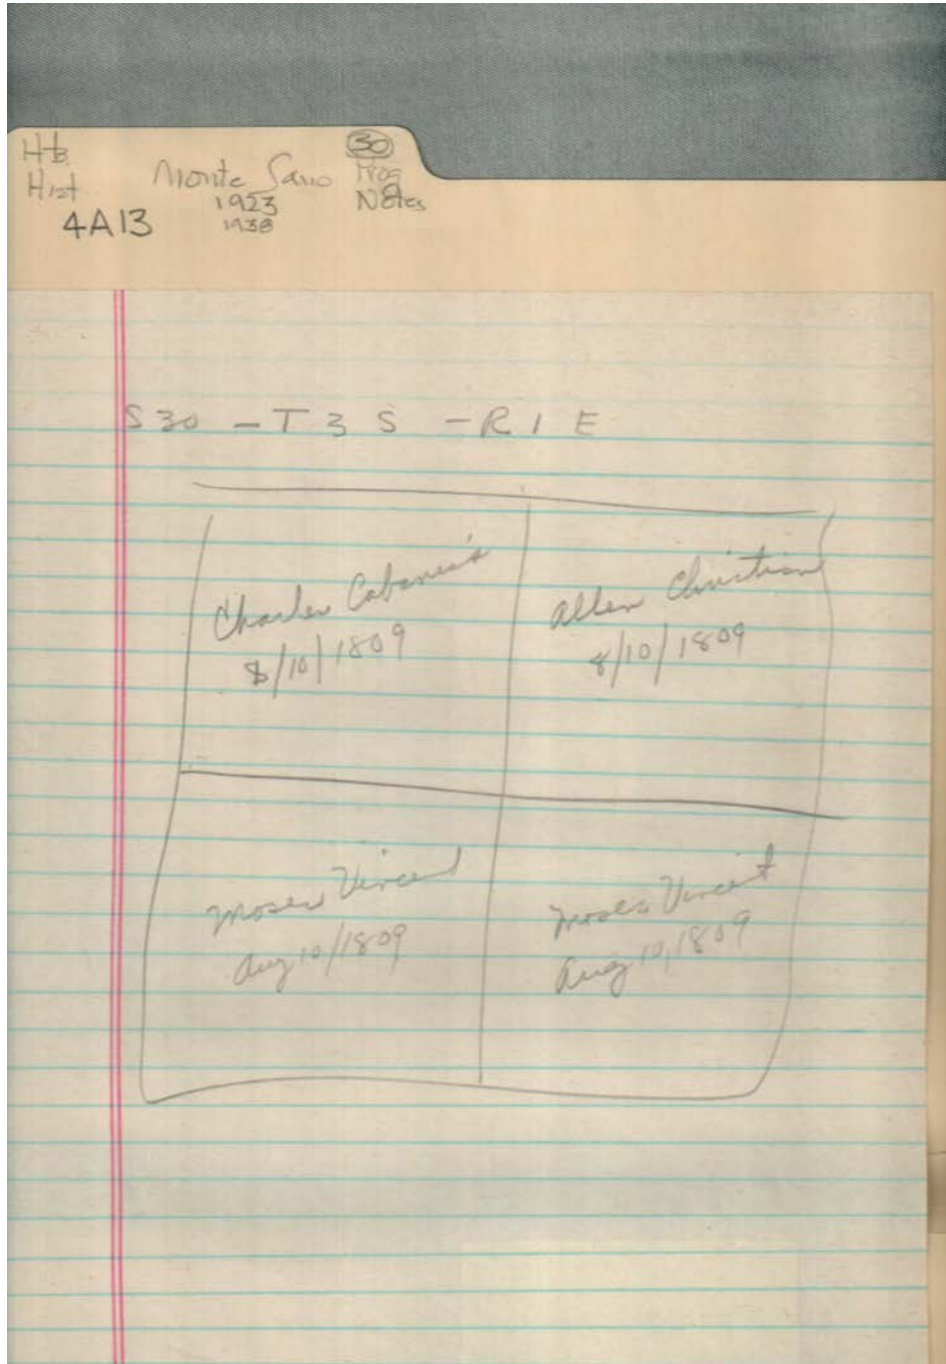 Htsv.
Hist
4A13
Monte Sano
1923
1938
30
Prog
Notes
S30 - T3S - R1E
Charles Cabaness
8/10/1809
Allen Christian
8/10/1809
Moses Vincent
Aug 10/1809
Moses Vincent
Aug 10, 1809